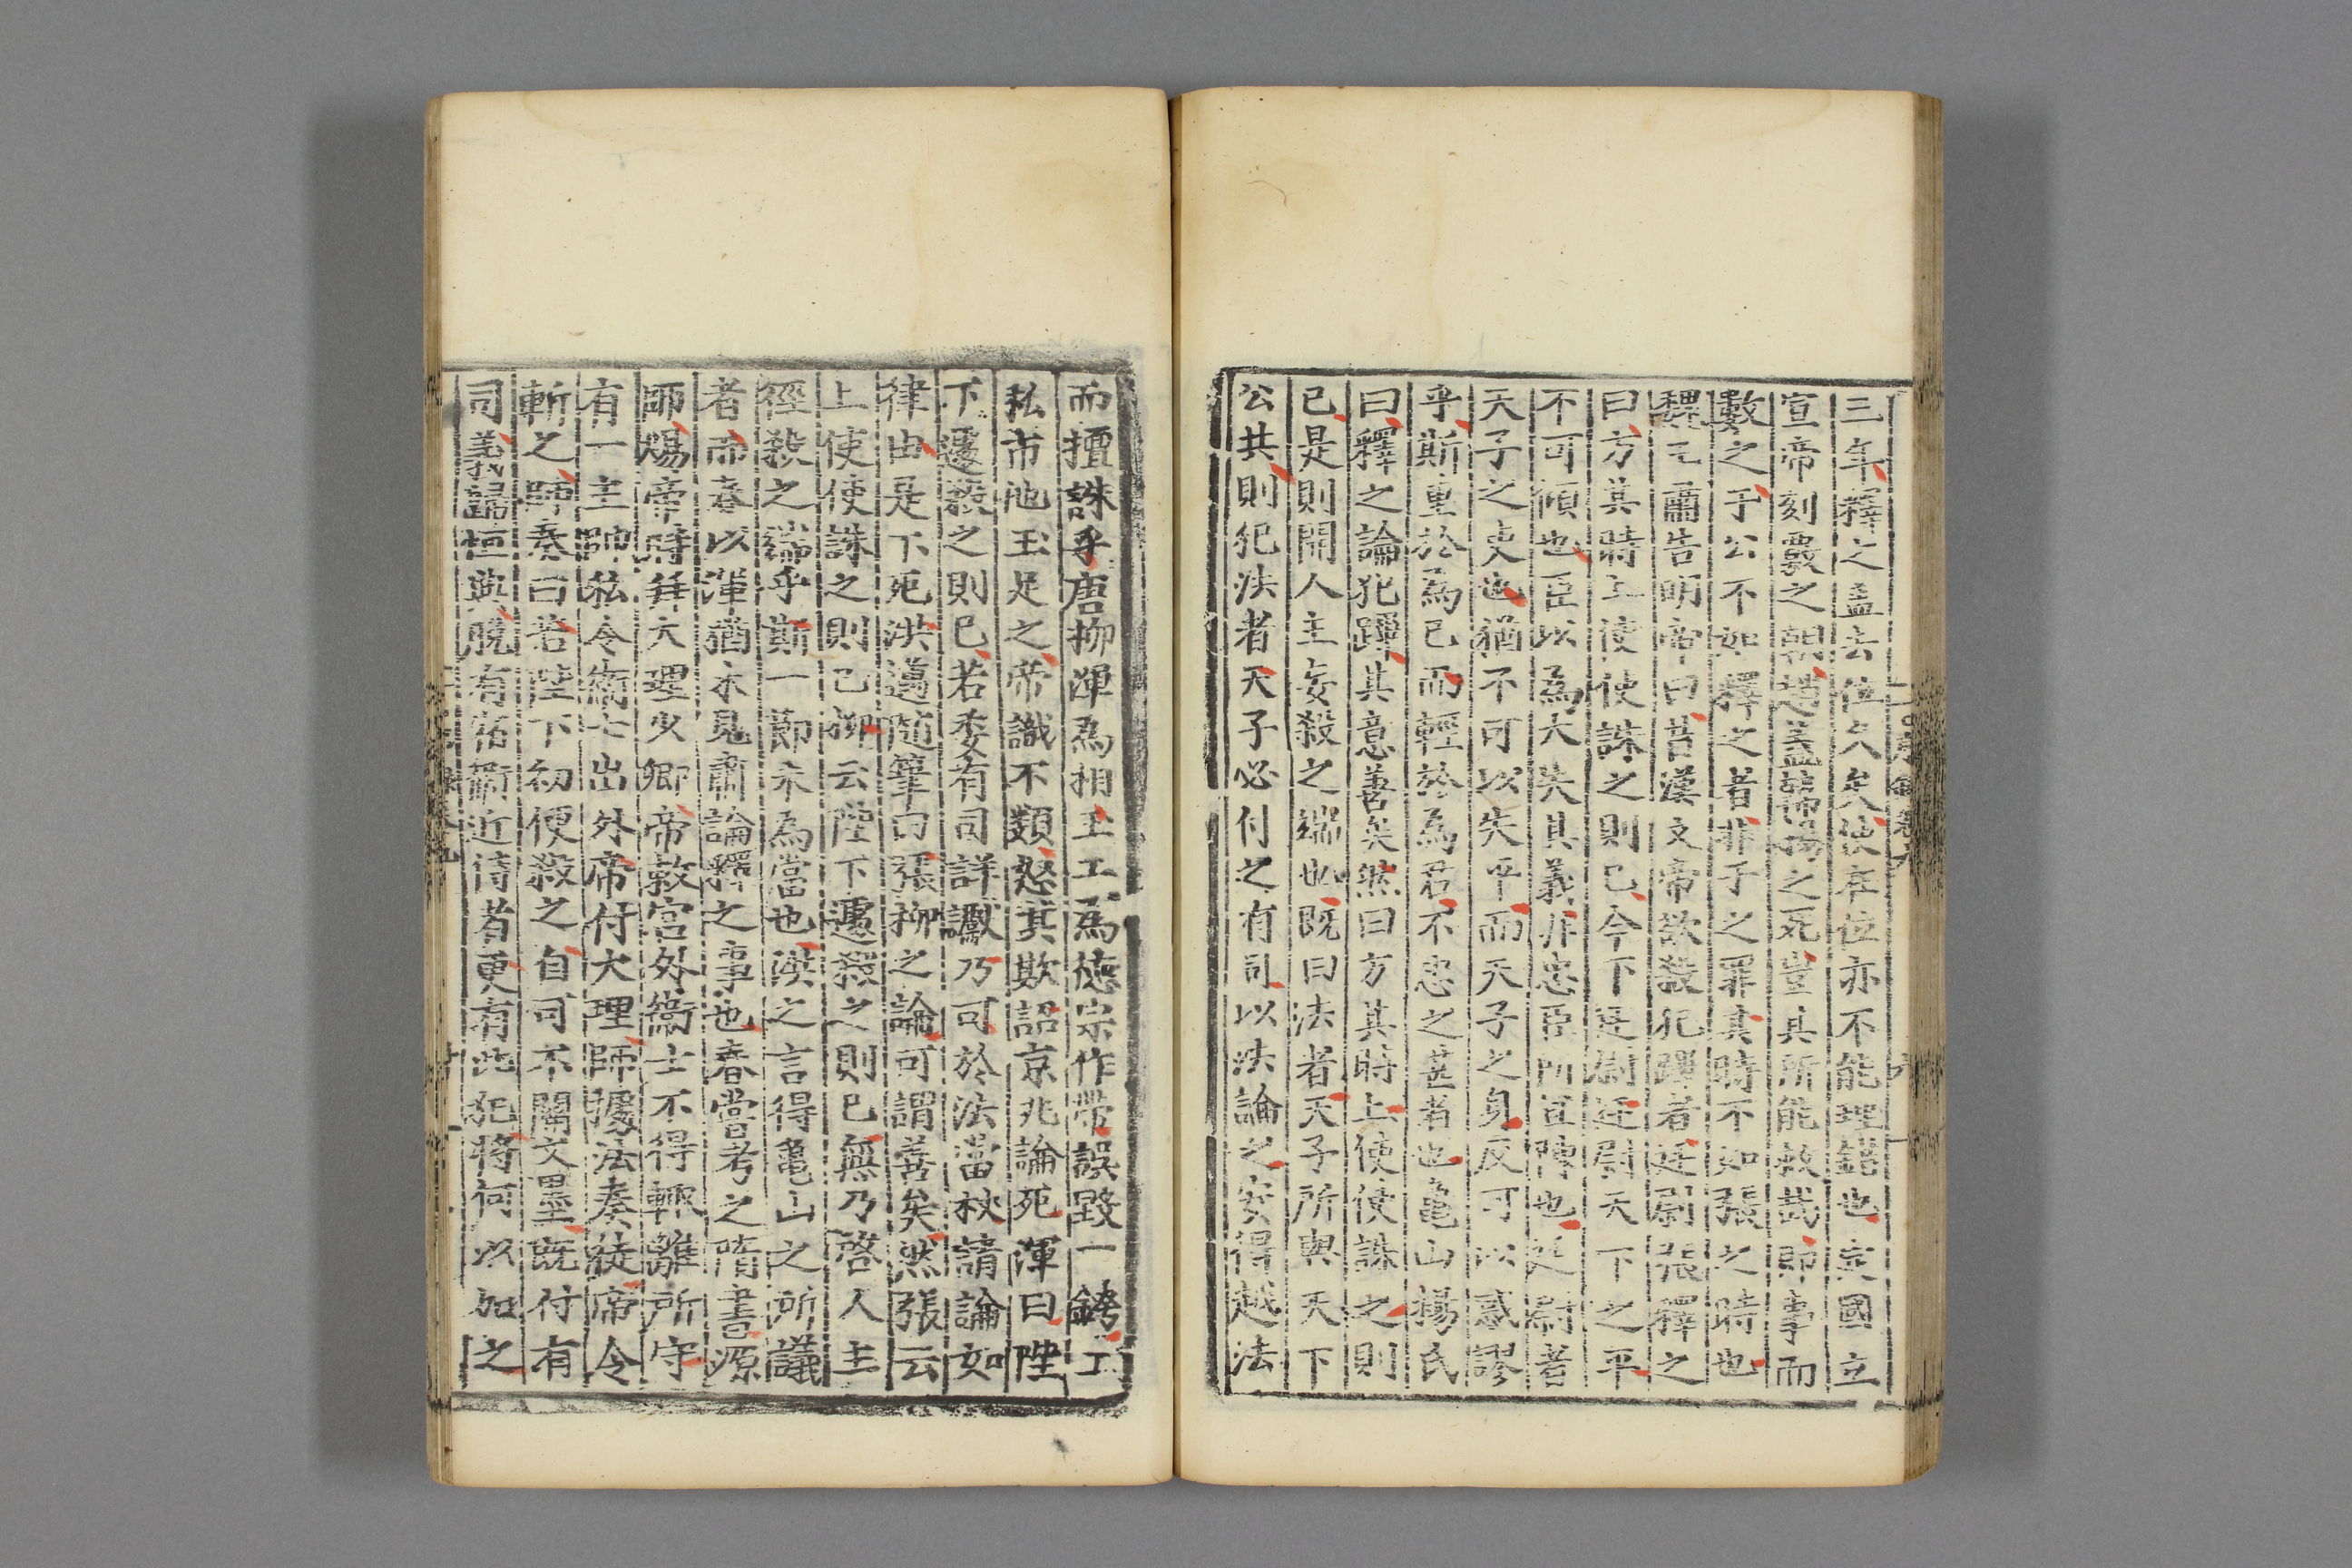 三年釋之盖去位久矣使在位亦不能理錯也京國立
宣帝刻覈之朝趙盖韓楊之死豈其所能救哉即事而
數之于公不如釋之者非于之罪其時不如張之時也
魏王肅告明帝曰昔漢文帝欲殺犯蹕者廷尉張釋之
曰方其時上使使誅之則已今下廷尉廷尉天下之平
不可傾也臣以為大失其義非忠臣所宜陳也廷尉者
天子之吏也猶不可以失平而天子之身反可以惑謬
乎斯重於為已而輕於為君不忠之甚者也龜山楊氏
曰釋之論犯蹕其意善矣然曰方其時上使使誅之則
已是則開人主妄殺之端也既曰法者天子所與天下
公共則犯法者天子必付之有司以法論之安得越法
而擅誅乎唐柳渾為相玉工為德宗作帶誤毀一銙工
私市他玉足之帝識不類怒其欺詔京兆論死渾曰陛
下遽殺之則已若委有司詳讞乃可於法當杖請論如
律由是不死洪邁隨筆曰張柳之論可謂善矣然張云
上使使誅之則已柳云陛下遽殺之則已無乃啓人主
徑殺之端乎斯一節未為當也洪之言得龜山之所議
者而春以渾猶未見肅論釋之事也春嘗考之隋書源
師煬帝時拜大理少卿帝敕宮外衛士不得輒離所守
有一主帥私令衛士出外帝付大理師據法奏徒帝令
斬之師奏曰若陛下初便殺之自可不關文墨既付有
司義歸恒典脫有宿衛近侍者更有此犯將何以加之